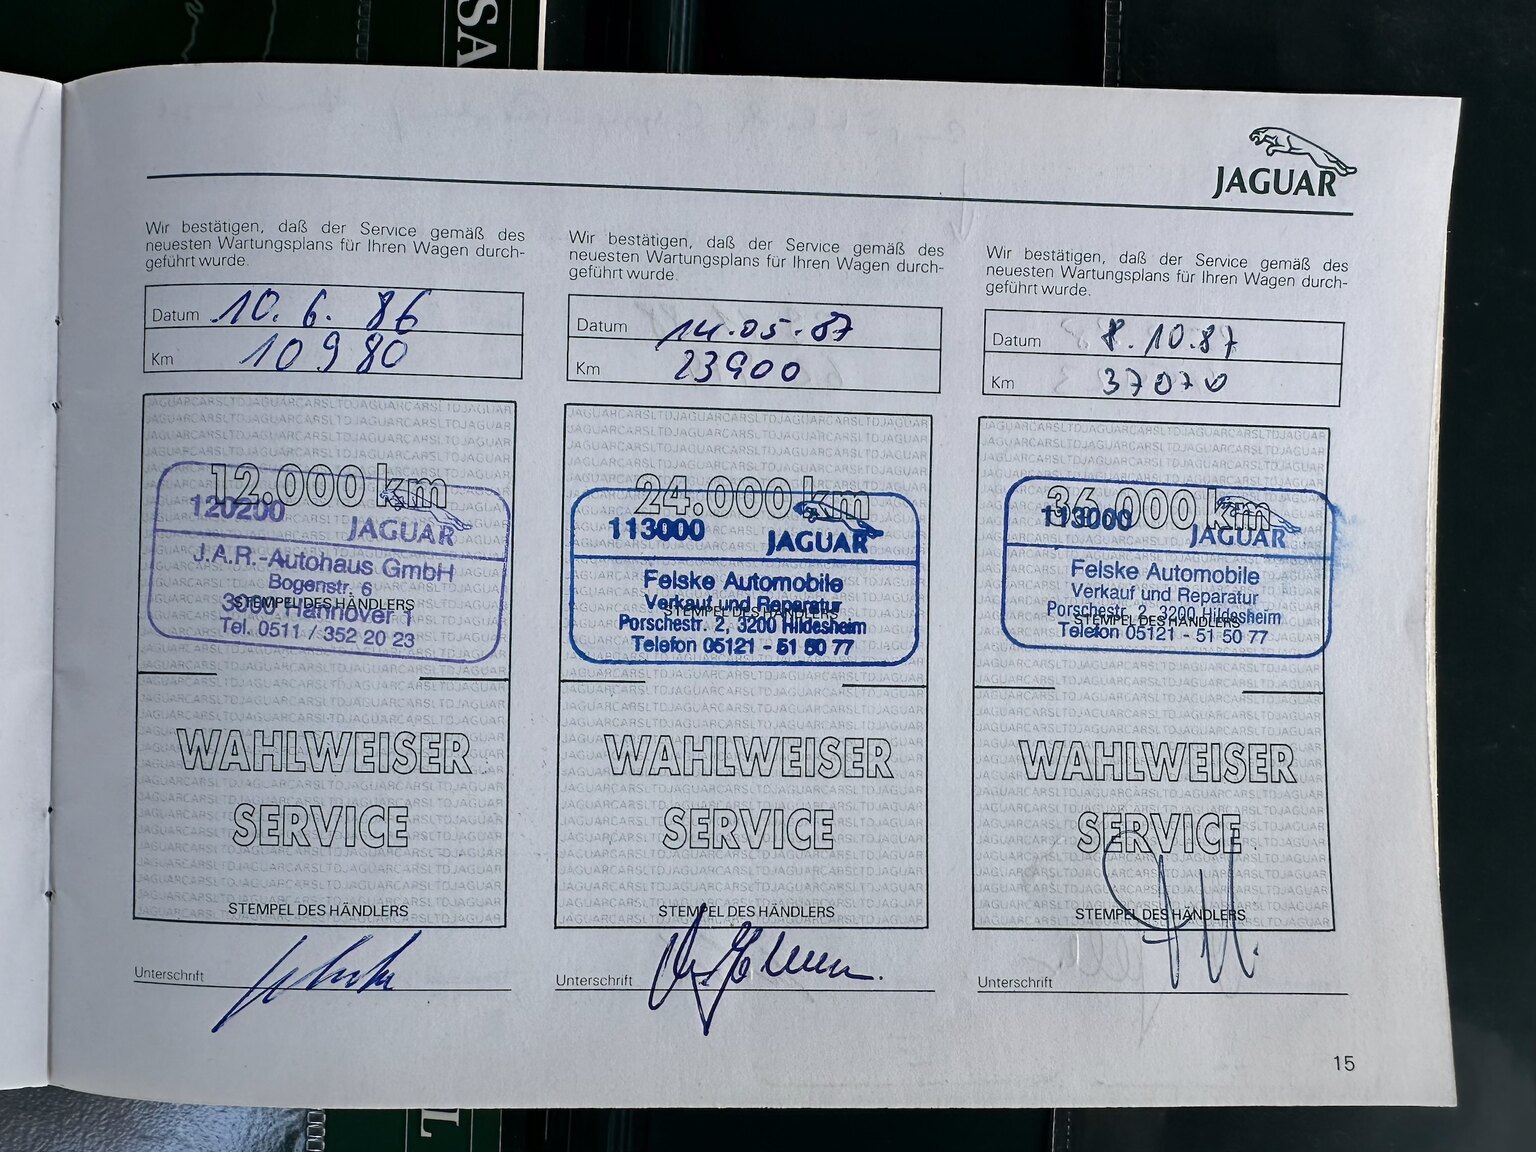 SA
JAGUAR
Wir bestätigen, daß der Service gemäß des
neuesten Wartungsplans für Ihren Wagen durch-
geführt wurde.
Datum 10. 6. 86
Km 10980
12.000 km
120200
JAGUAR
J.A.R.-Autohaus GmbH
Bogenstr. 6
3000 Hannover 1
STEMPEL DES HÄNDLERS
Tel. 0511 / 352 20 23
WAHLWEISER
SERVICE
STEMPEL DES HÄNDLERS
Unterschrift
Wir bestätigen, daß der Service gemäß des
neuesten Wartungsplans für Ihren Wagen durch-
geführt wurde.
Datum 14.05.87
Km 23900
24.000 km
113000
JAGUAR
Felske Automobile
Verkauf und Reparatur
STEMPEL DES HÄNDLERS
Porschestr. 2, 3200 Hildesheim
Telefon 05121 - 51 50 77
WAHLWEISER
SERVICE
STEMPEL DES HÄNDLERS
Unterschrift
Wir bestätigen, daß der Service gemäß des
neuesten Wartungsplans für Ihren Wagen durch-
geführt wurde.
Datum 8.10.87
Km 37070
36.000 km
113000
JAGUAR
Felske Automobile
Verkauf und Reparatur
Porschestr. 2, 3200 Hildesheim
STEMPEL DES HÄNDLERS
Telefon 05121 - 51 50 77
WAHLWEISER
SERVICE
STEMPEL DES HÄNDLERS
Unterschrift
15
L